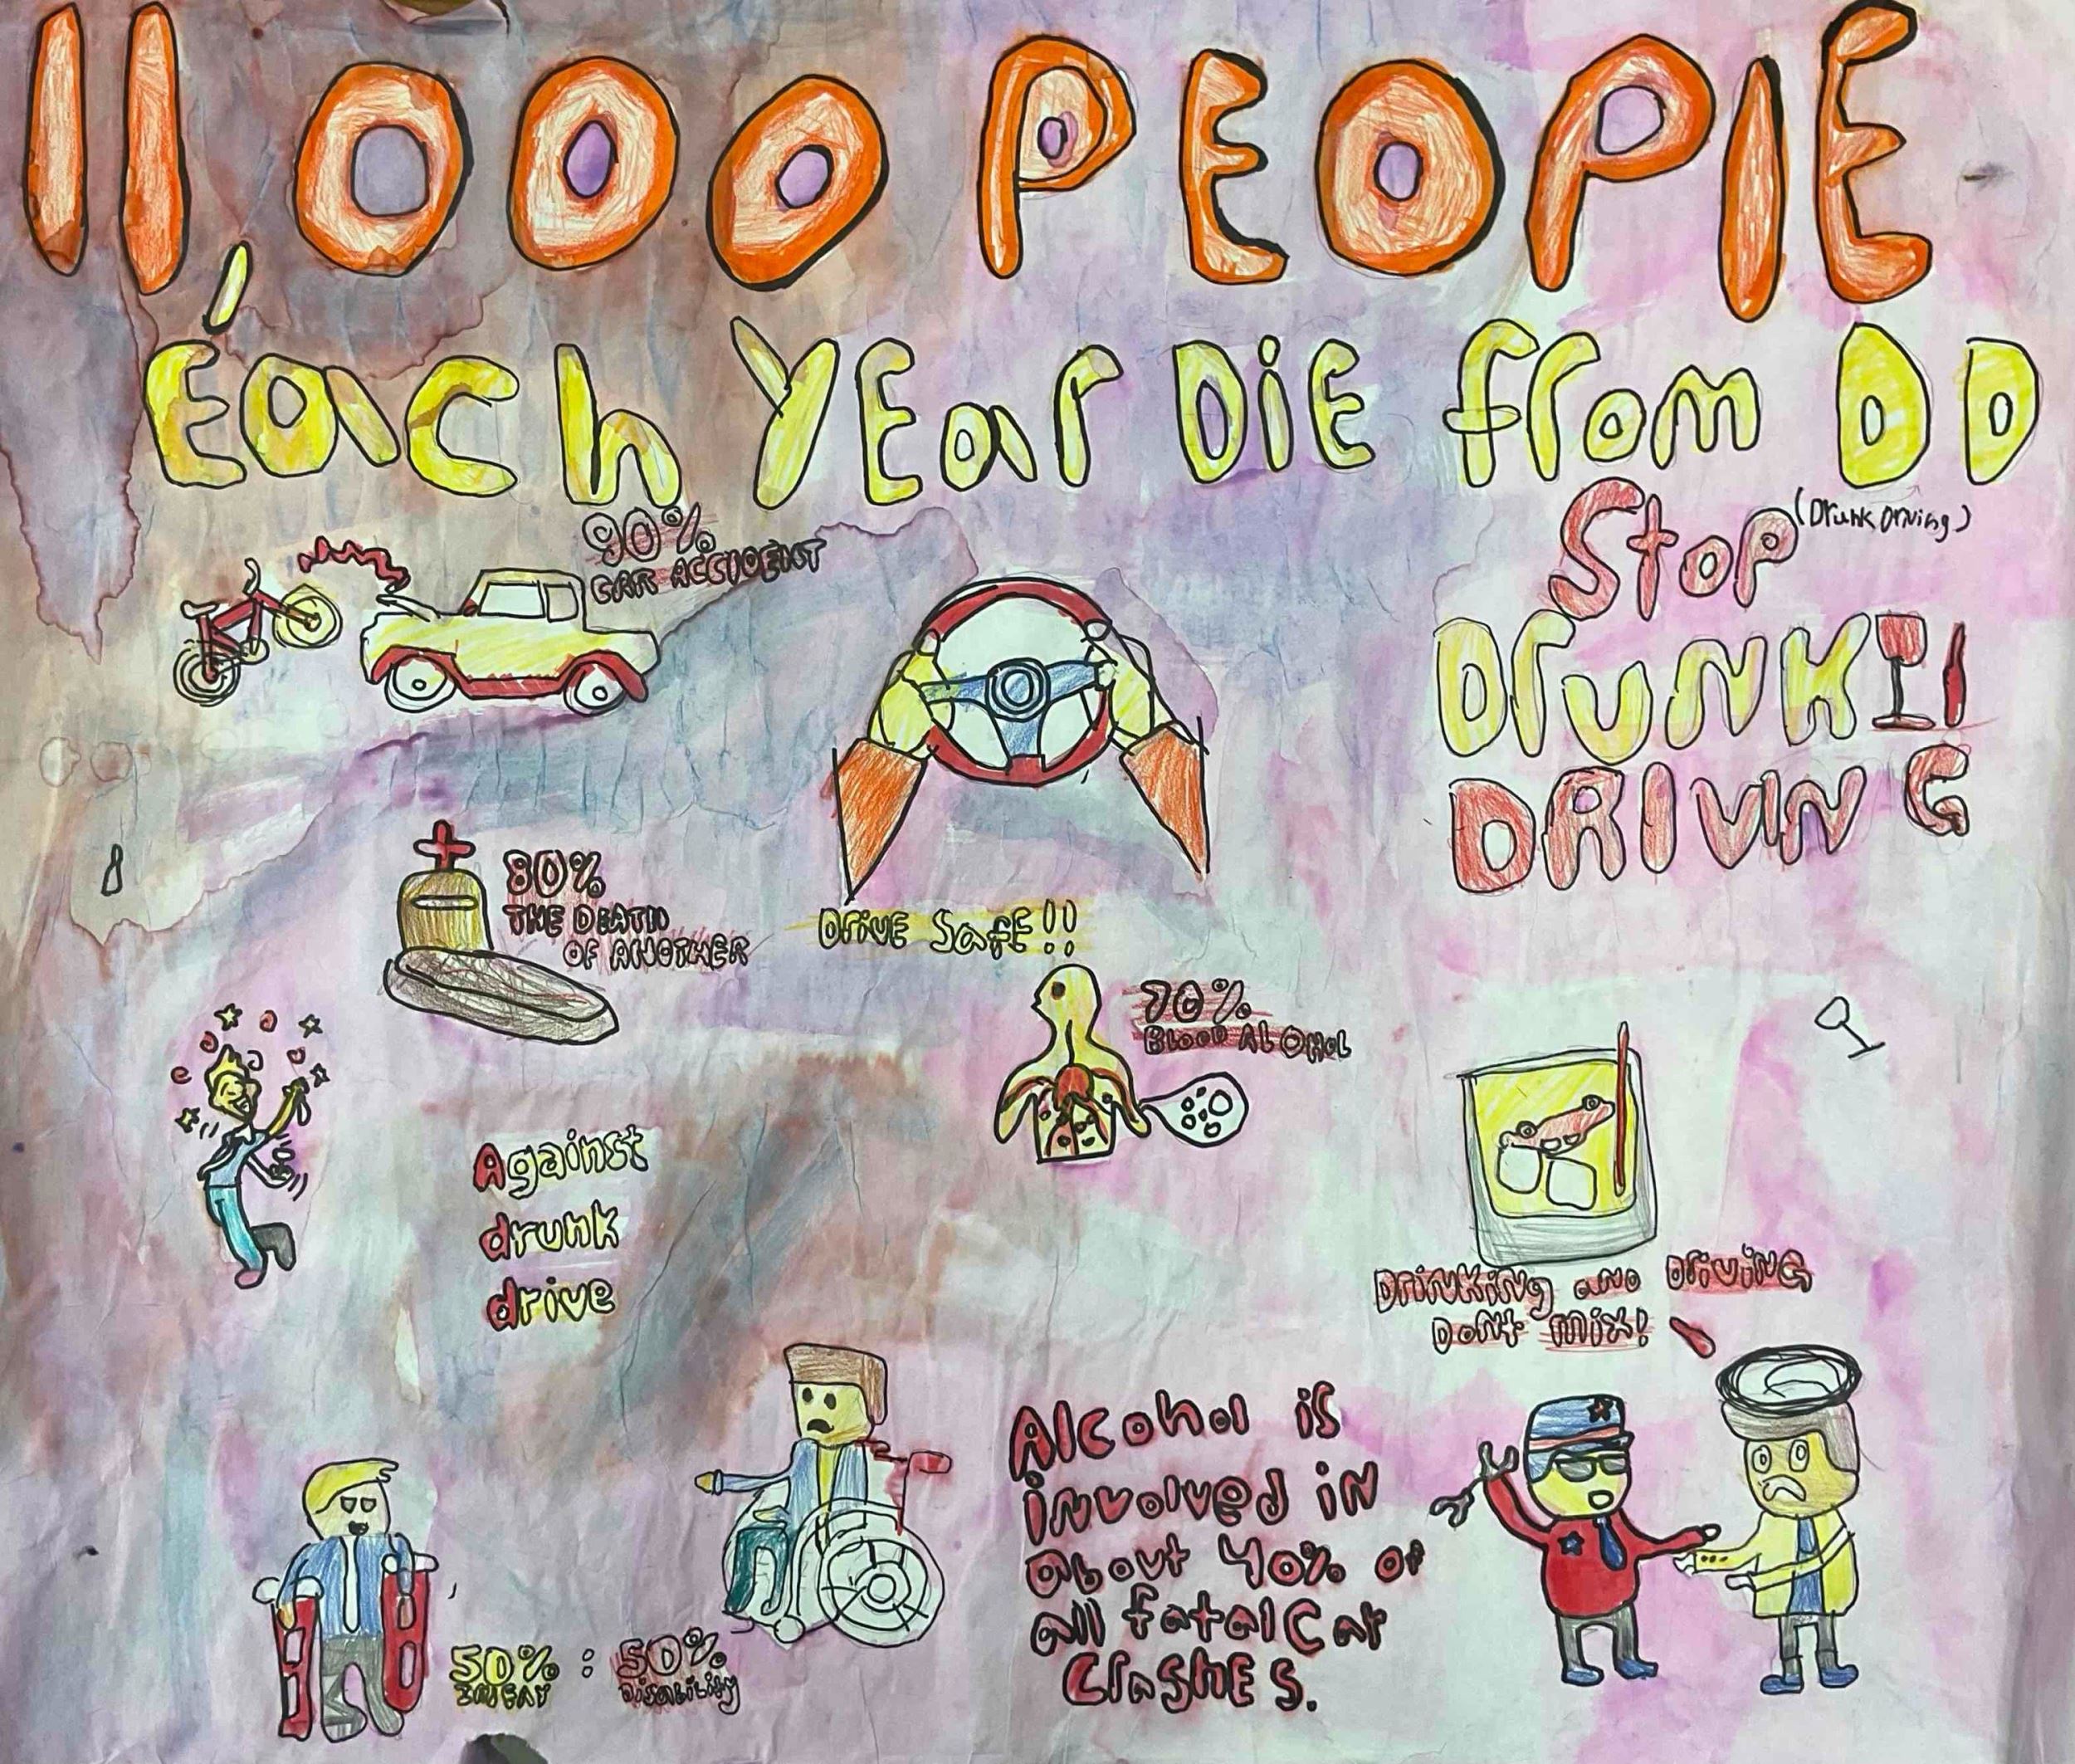 11,000 PEOPlE
Each YEar DiE from DD
(Drunk Driving)
Stop
Drunk
DRIVING
90%
CAR ACCIDENT
80%
THE DEATH
OF ANOTHER
Drive Safe!!
70%
Blood AlOHol
Against
drunk
drive
Drinking and Driving
Dont mix!
Alcohol is
involved in
about 40% of
all fatal Car
CrasHES.
50% : 50%
Disability